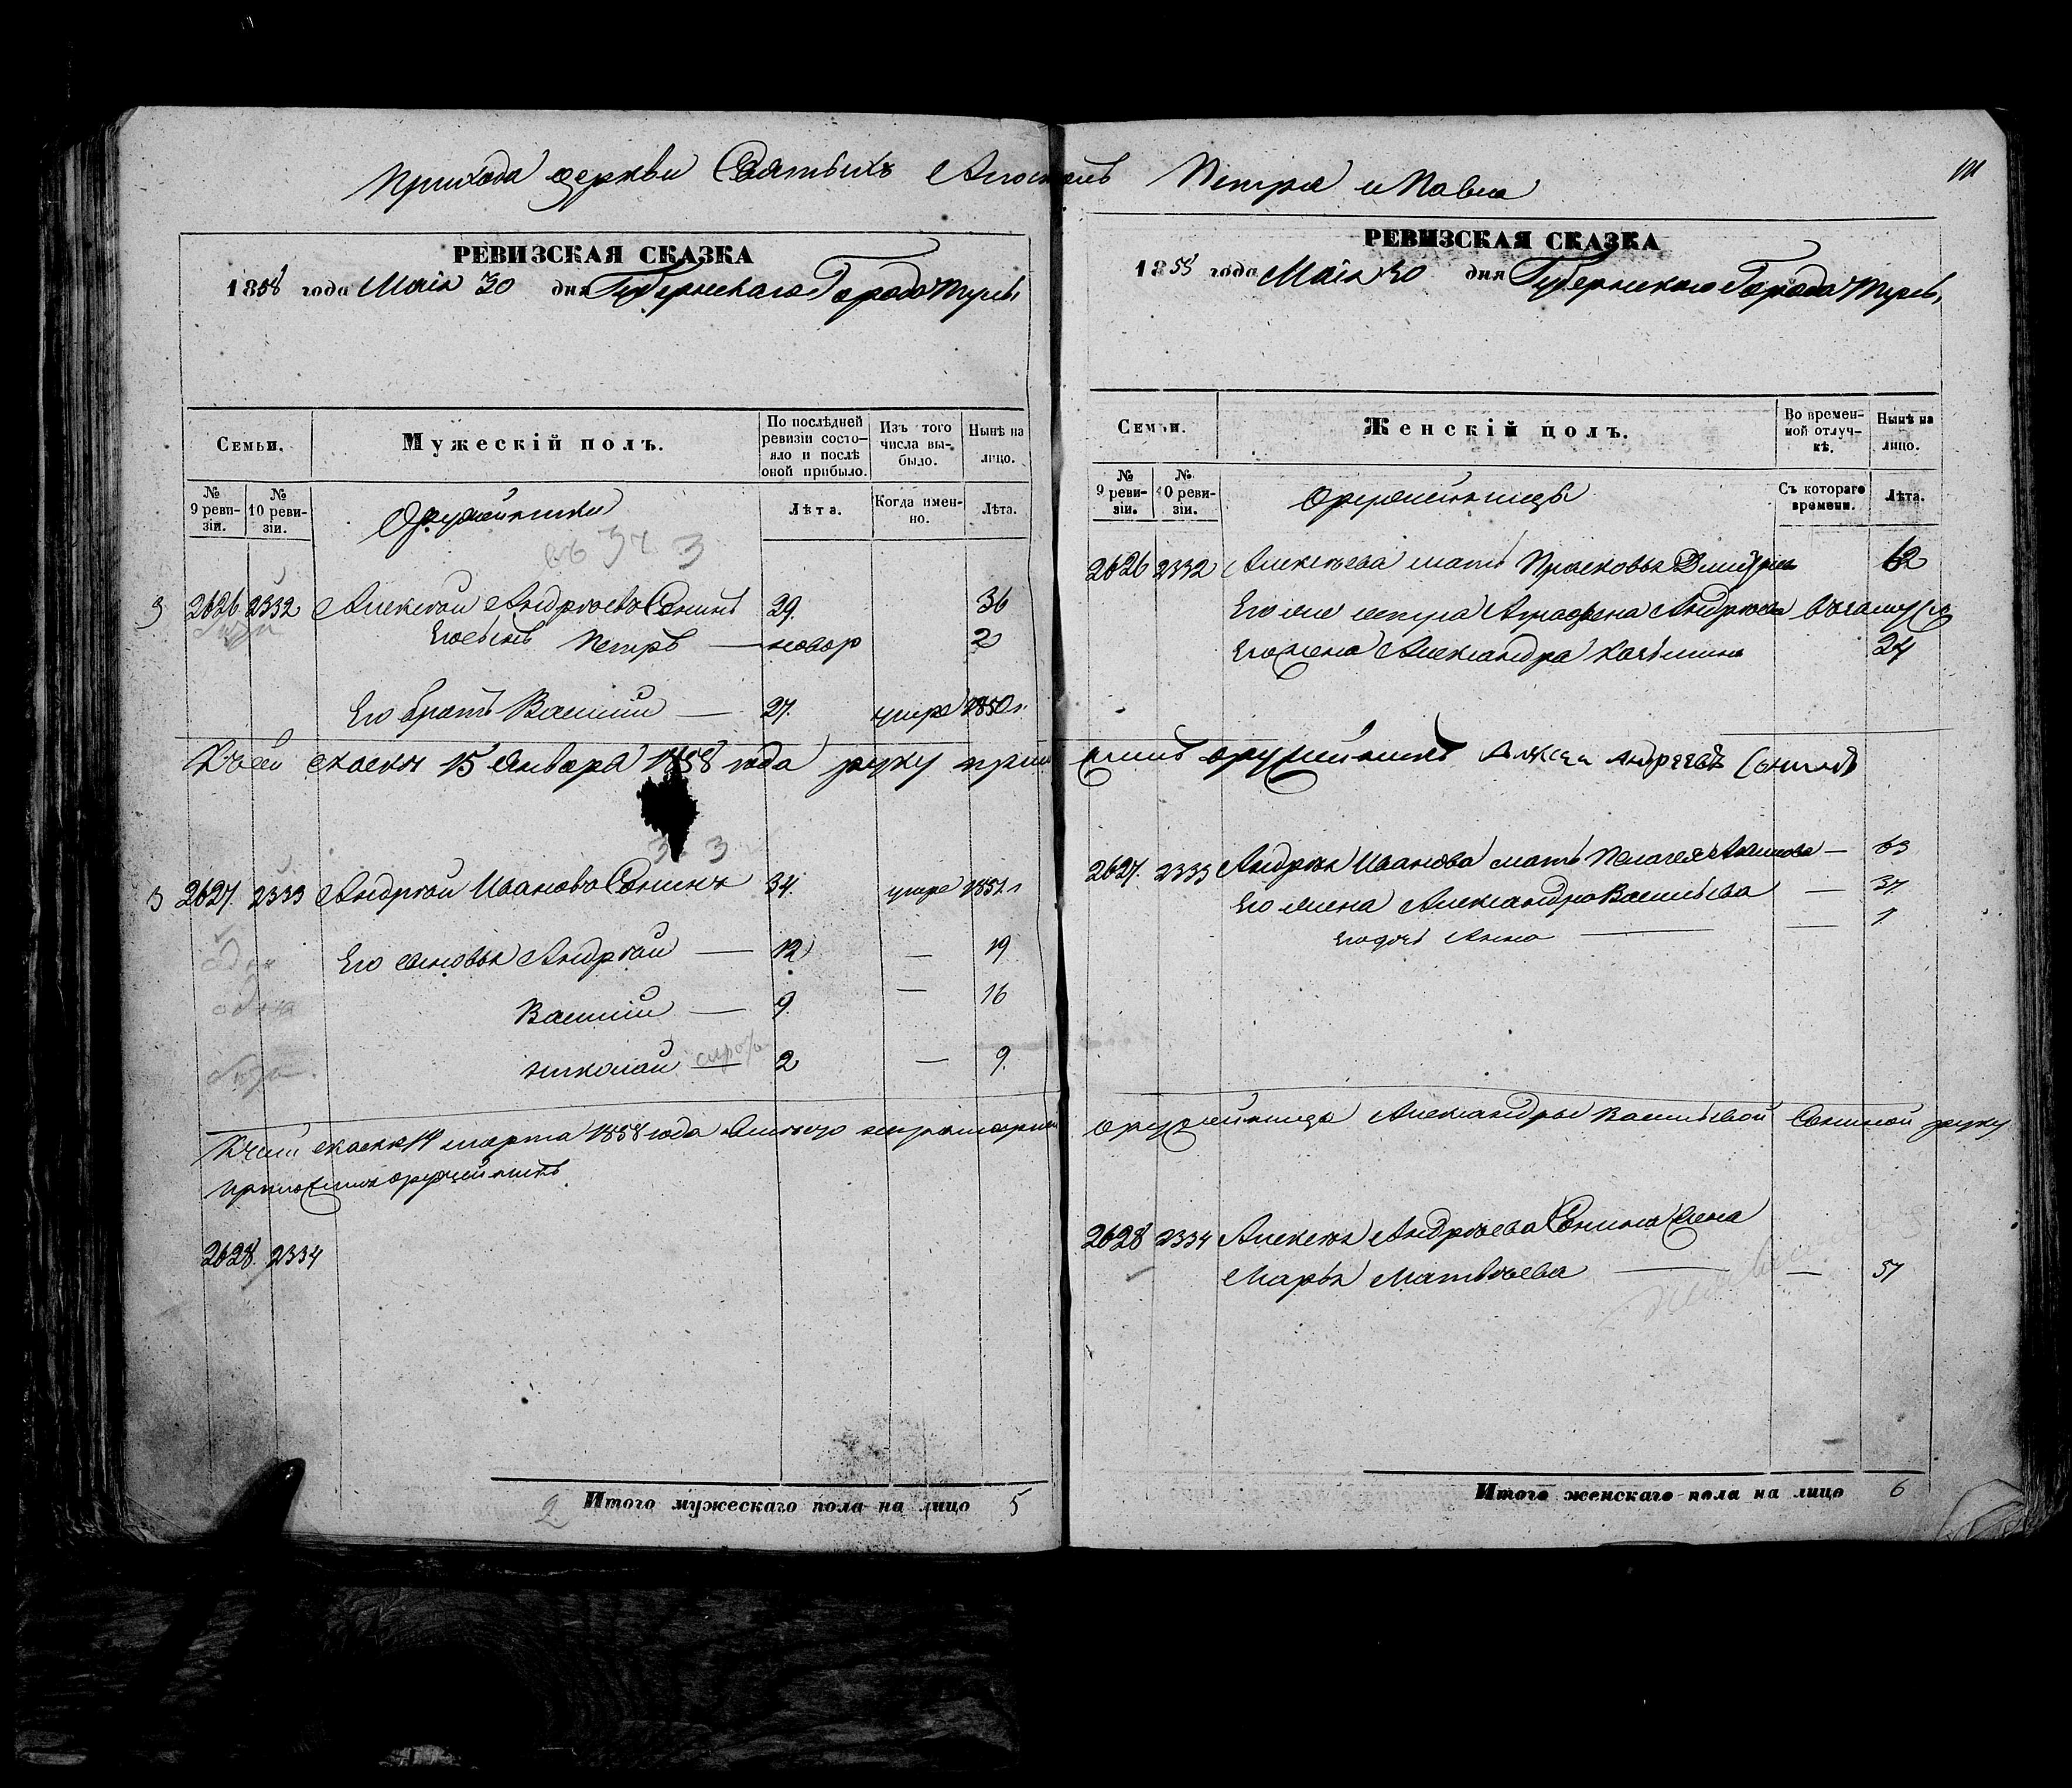 Прихода церкви Святыхъ Апостолъ Петра и Павла
РЕВИЗСКАЯ СКАЗКА
1858 года Маія 30 дня Губернскаго Города Тулы
Семьи.
Мужескій полъ.
По послѣдней ревизіи состо-
яло и послѣ оной прибыло.
Изъ того числа вы-
было.
Нынѣ на лицо.
№ 9 реви-
зіи.
№ 10 реви-
зіи.
Оружейники
Лѣта.
Когда имен-
но.
Лѣта.
3 2626 2332 Алексѣй Андреевъ Сонинъ 29. 36
Его сынъ Петръ — новор 2
Его братъ Василій — 27. умре 1850 г.
Къ сей сказкѣ 15 Января 1858 года руку прило
3 3
3 2627. 2333 Андрей Ивановъ Сонинъ 34. умре 1851 г
Его сыновья Андрей — 12 — 19
Василій — 9. — 16
Николай — 2 — 9.
К сей сказкѣ 14 марта 1858 года вмѣсто неграмотной
приложилъ оружейникъ
2628. 2334
2 Итого мужескаго пола на лицо 5
РЕВИЗСКАЯ СКАЗКА
1858 года Маія 30 дня Губернскаго Города Тулы
Семьи.
Женскій полъ.
Во времен-
ной отлуч-
кѣ.
Нынѣ на лицо.
№ 9 реви-
зіи.
№ 10 реви-
зіи.
оружейницы
Съ котораго времени.
Лѣта.
2626 2332 Алексѣева мать Прасковья Дмитріева 62
Его же сестра Аграфена Андреева въ замуж
Его жена Александра Козьмина 24
жилъ оружейникъ Алексей Андреевъ Сонинъ
2627. 2333 Андрея Иванова мать Пелагея — 63
Его жена Александра Васильева — 37.
Его дочь Анна — — 1
оружейницы Александры Васильевой Сониной руку
2628 2334 Алексѣя Андреева Сонина жена
Марья Матвѣева — — 51
Итого женскаго пола на лицо 6